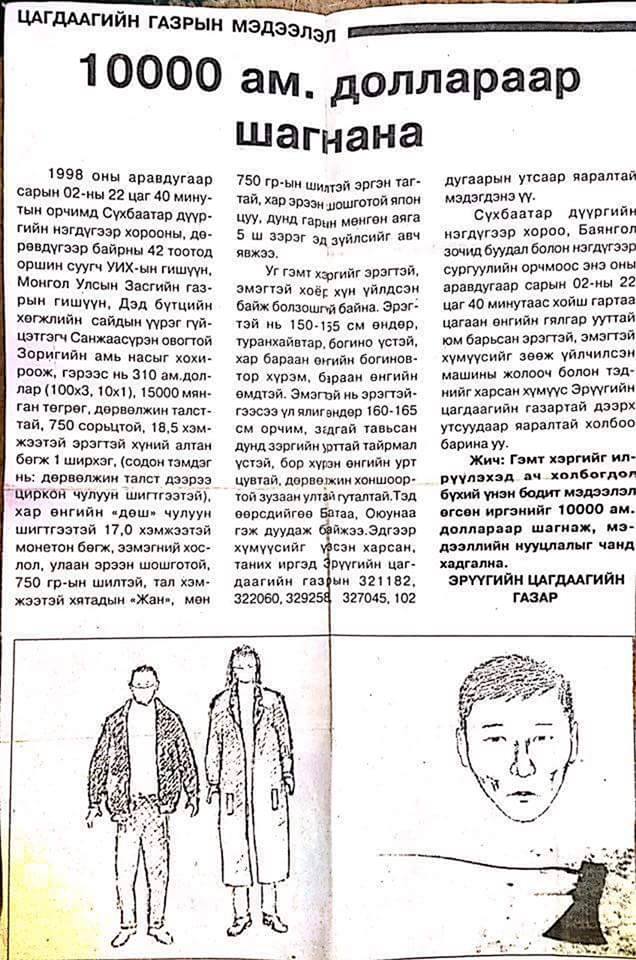 ЦАГДААГИЙН ГАЗРЫН МЭДЭЭЛЭЛ
10000 ам. доллараар
шагнана
1998 оны аравдугаар
сарын 02-ны 22 цаг 40 мину-
тын орчимд Сүхбаатар дүүр-
гийн нэгдүгээр хорооны, дө-
рөвдүгээр байрны 42 тоотод
оршин суугч УИХ-ын гишүүн,
Монгол Улсын Засгийн газ-
рын гишүүн, Дэд бүтцийн
хөгжлийн сайдын үүрэг гүй-
цэтгэгч Санжаасүрэн овогтой
Зоригийн амь насыг хохи-
роож, гэрээс нь 310 ам.дол-
лар (100x3, 10x1), 15000 мян-
ган төгрөг, дөрвөлжин талст-
тай, 750 сорьцтой, 18,5 хэм-
жээтэй эрэгтэй хүний алтан
бөгж 1 ширхэг, (содон тэмдэг
нь: дөрвөлжин талст дээрээ
циркон чулуун шигтгээтэй),
хар өнгийн «дөш» чулуун
шигтгээтэй 17,0 хэмжээтэй
монетон бөгж, ээмэгний хос-
лол, улаан эрээн шошготой,
750 гр-ын шилтэй, тал хэм-
жээтэй хятадын «Жан», мөн
750 гр-ын шилтэй эргэн таг-
тай, хар эрээн шошготой япон
цуу, дунд гарын мөнгөн аяга
5 ш зэрэг эд зүйлсийг авч
явжээ.
Уг гэмт хэргийг эрэгтэй,
эмэгтэй хоёр хүн үйлдсэн
байж болзошгүй байна. Эрэг-
тэй нь 150-155 см өндөр,
туранхайвтар, богино үстэй,
хар бараан өнгийн богинов-
тор хүрэм, бараан өнгийн
өмдтэй. Эмэгтэй нь эрэгтэй-
гээсээ үл ялиг өндөр 160-165
см орчим, задгай тавьсан
дунд зэргийн урттай тайрмал
үстэй, бор хүрэн өнгийн урт
цувтай, дөрвөлжин хоншоор-
той зузаан ултай гуталтай.Тэд
өөрсдийгөө Батаа, Оюунаа
гэж дуудаж байжээ.Эдгээр
хүмүүсийг үзсэн харсан,
таних иргэд Эрүүгийн цаг-
даагийн газрын 321182,
322060, 329258, 327045, 102
дугаарын утсаар яаралтай
мэдэгдэнэ үү.
Сүхбаатар дүүргийн
нэгдүгээр хороо, Баянгол
зочид буудал болон нэгдүгээр
сургуулийн орчмоос энэ оны
аравдугаар сарын 02-ны 22
цаг 40 минутаас хойш гартаа
цагаан өнгийн гялгар ууттай
юм барьсан эрэгтэй, эмэгтэй
хүмүүсийг зөөж үйлчилсэн
машины жолооч болон тэд-
нийг харсан хүмүүс Эрүүгийн
цагдаагийн газартай дээрх
утсуудаар яаралтай холбоо
барина уу.
Жич: Гэмт хэргийг ил-
рүүлэхэд ач холбогдол
бүхий үнэн бодит мэдээлэл
өгсөн иргэнийг 10000 ам.
доллараар шагнаж, мэ-
дээллийн нууцлалыг чанд
хадгална.
ЭРҮҮГИЙН ЦАГДААГИЙН
ГАЗАР